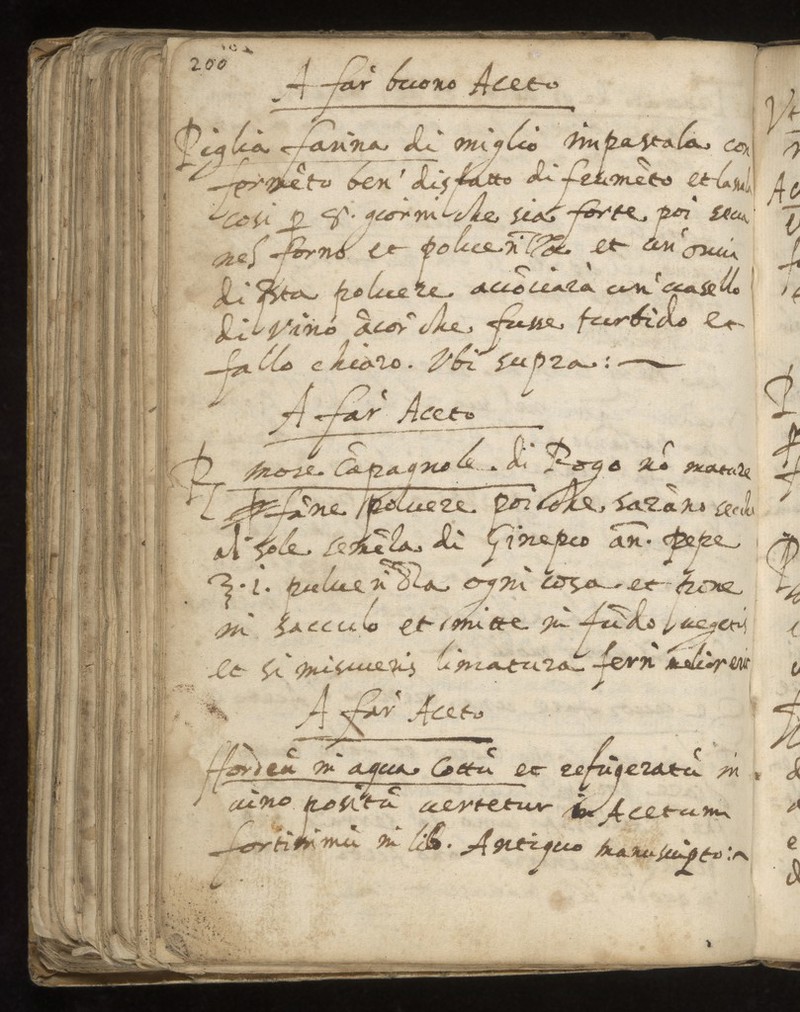 200
A far' buono Aceto
Piglia farina di miglio impastala con
formēto ben' disfatto di frumēto et lassala
cosi p 8. giorni che sia forte poi secca
nel forno et et un' oncia
di q̄sta polvere acōciarà un' vasello
di vino ācor che fusse turbido et
fallo chiaro. Vbi supra:
A far' Aceto
R more cāpagnole . di Rogo nō mature
fāne polvere poi che sarāno secche
al sole semēla di Ginepro an̄. pepe
ʒ. i. ogni cosa et pone
in sacculo et mitte in fūdo vegetis
et si miscueris limatura ferri melior erit
A far' Aceto
Hordeū in aqua Cottū et refrigeratū in
vino positū vertetur in Acetum
fortissimū in lib. Antiquo manuscripto: